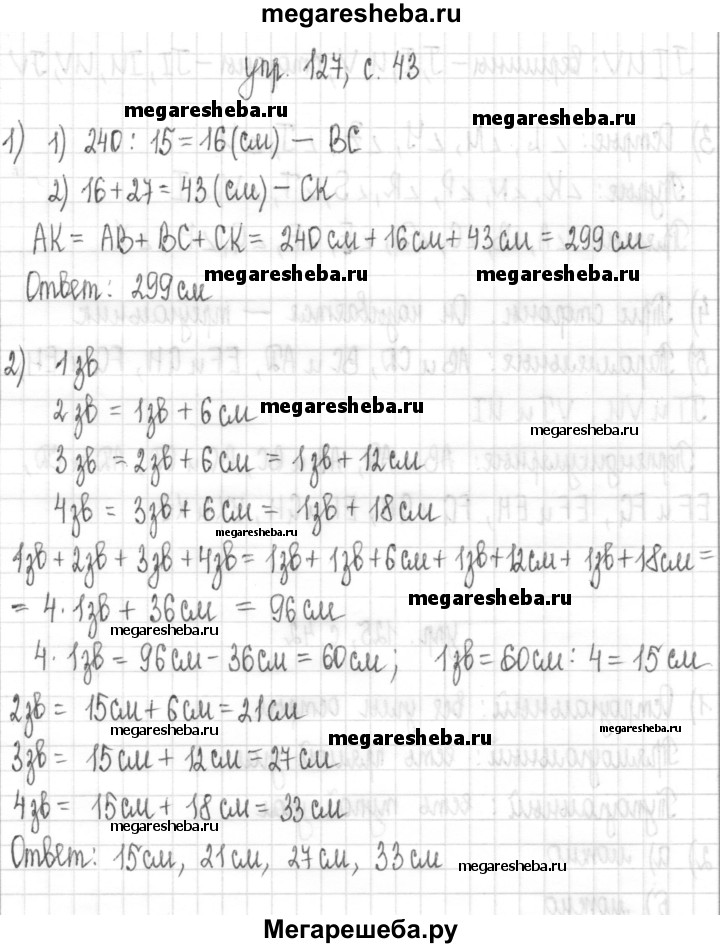 megaresheba.ru
упр. 127, с. 43
megaresheba.ru megaresheba.ru
1) 1) 240 : 15 = 16 (см) – BC
2) 16 + 27 = 43 (см) – CK
AK = AB + BC + CK = 240 см + 16 см + 43 см = 299 см
Ответ: 299 см megaresheba.ru megaresheba.ru
2) 1 зв
2 зв = 1 зв + 6 см megaresheba.ru
megaresheba.ru
3 зв = 2 зв + 6 см = 1 зв + 12 см
4 зв = 3 зв + 6 см = 1 зв + 18 см
megaresheba.ru
1 зв + 2 зв + 3 зв + 4 зв = 1 зв + 1 зв + 6 см + 1 зв + 12 см + 1 зв + 18 см =
= 4 · 1 зв + 36 см = 96 см megaresheba.ru
megaresheba.ru
4 · 1 зв = 96 см – 36 см = 60 см; 1 зв = 60 см : 4 = 15 см
2 зв = 15 см + 6 см = 21 см
megaresheba.ru megaresheba.ru megaresheba.ru
3 зв = 15 см + 12 см = 27 см
4 зв = 15 см + 18 см = 33 см
megaresheba.ru
Ответ: 15 см, 21 см, 27 см, 33 см megaresheba.ru
Мегарешеба.ру